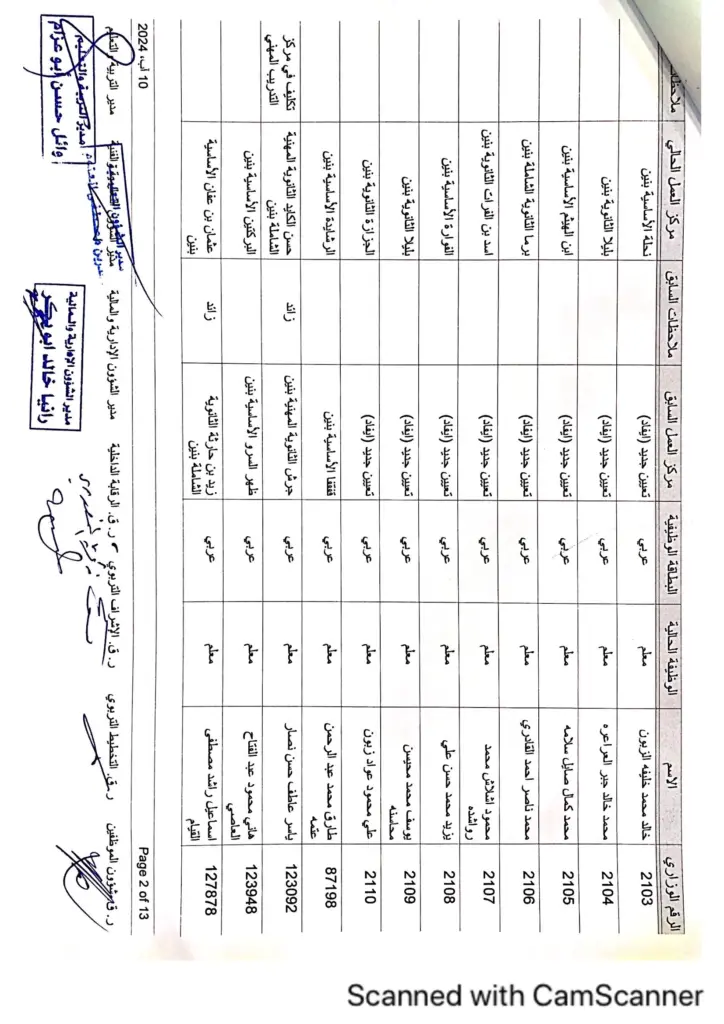 الرقم الوزاري | الاسم | الوظيفة الحالية | البطاقة الوظيفية | مركز العمل السابق | ملاحظات السابق | مركز العمل الحالي | ملاحظات
2103 | خالد محمد خليفه الزبون | معلم | عربي | تعيين جديد (ايفاد) | نحلة الأساسية بنين
2104 | محمد خالد جبر العراعره | معلم | عربي | تعيين جديد (ايفاد) | بليلا الثانوية بنين
2105 | محمد كمال صايل سلامه | معلم | عربي | تعيين جديد (ايفاد) | ابن الهيثم الأساسية بنين
2106 | محمد ناصر احمد القادري | معلم | عربي | تعيين جديد (ايفاد) | برما الثانوية الشاملة بنين
2107 | محمود اشلاش محمد رواشده | معلم | عربي | تعيين جديد (ايفاد) | اسد بن الفرات الثانوية بنين
2108 | يزيد محمد حسن علي | معلم | عربي | تعيين جديد (ايفاد) | الفوارة الأساسية بنين
2109 | يوسف محمد محيسن محاسنه | معلم | عربي | تعيين جديد (ايفاد) | بليلا الثانوية بنين
2110 | علي محمود عواد زبون | معلم | عربي | تعيين جديد (ايفاد) | الجزازة الثانوية بنين
87198 | طارق محمد عبد الرحمن عتمه | معلم | عربي | قفقفا الأساسية بنين | الرشايدة الأساسية بنين
123092 | ياسر عاطف حسن نصار | معلم | عربي | جرش الثانوية المهنية بنين | زائد | حسن الكايد الثانوية المهنية الشاملة بنين | تكليف في مركز التدريب المهني
123948 | هاني محمود عبد الفتاح العاصي | معلم | عربي | ظهر السرو الأساسية بنين | البركتين الأساسية بنين
127878 | اسماعيل راشد مصطفى القيام | معلم | عربي | زيد بن حارثة الثانوية الشاملة بنين | زائد | عثمان بن عفان الأساسية بنين
Page 2 of 13
10 آب، 2024
ر. ق. شؤون الموظفين
ر. ق. التخطيط التربوي
ر. ق. الإشراف التربوي
ر. ق. الرقابة الداخلية
مدير الشؤون الإدارية والمالية
مدير الشؤون التعليمية والفنية
مدير التربية والتعليم
مدير الشؤون الإدارية والمالية
رانيا خالد ابو بكر
مدير الشؤون التعليمية والفنية
مدير التربية والتعليم
وائل حسن أبو عزام
Scanned with CamScanner